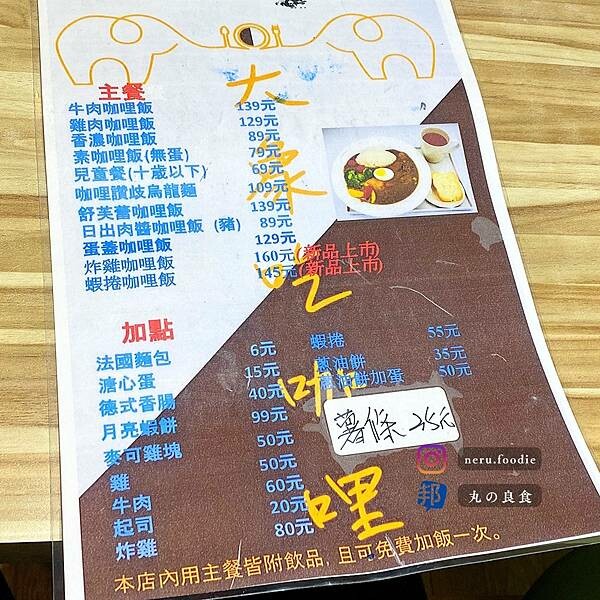 大象吃咖哩
主餐
牛肉咖哩飯 139元
雞肉咖哩飯 129元
香濃咖哩飯 89元
素咖哩飯(無蛋) 79元
兒童餐(十歲以下) 69元
咖哩讚歧烏龍麵 109元
舒芙蕾咖哩飯 139元
日出肉醬咖哩飯(豬) 89元
蛋蓋咖哩飯 129元
炸雞咖哩飯 160元(新品上市)
蝦捲咖哩飯 145元(新品上市)
加點
法國麵包 6元
溏心蛋 15元
德式香腸 40元
月亮蝦餅 99元
麥可雞塊 50元
雞 50元
牛肉 60元
起司 20元
炸雞 80元
蝦捲 55元
蔥油餅 35元
蔥油餅加蛋 50元
薯條 25元
neru.foodie
邦 丸の良食
本店內用主餐皆附飲品,且可免費加飯一次。